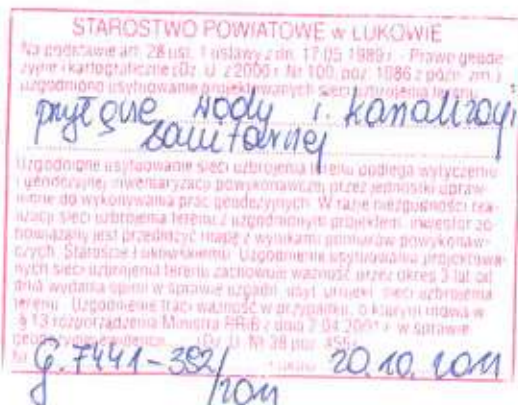 STAROSTWO POWIATOWE w ŁUKOWIE
Na podstawie art. 28 ust. 1 ustawy z dn. 17.05.1989 r. - Prawo geode-
zyjne i kartograficzne (Dz. U. z 2000 r. Nr 100, poz. 1086 z późn. zm.)
uzgodniono usytuowanie projektowanych sieci uzbrojenia terenu
przyłącze wody i kanalizacji
sanitarnej
Uzgodnione usytuowanie sieci uzbrojenia terenu podlega wytyczeniu
i geodezyjnej inwentaryzacji powykonawczej przez jednostki upraw-
nione do wykonywania prac geodezyjnych. W razie niezgodności rea-
lizacji sieci uzbrojenia terenu z uzgodnionym projektem, inwestor zo-
bowiązany jest przedłożyć mapę z wynikami pomiarów powykonaw-
czych Staroście Łukowskiemu. Uzgodnienie usytuowania projektowa-
nych sieci uzbrojenia terenu zachowuje ważność przez okres 3 lat od
dnia wydania opinii w sprawie uzgodn. usyt. projekt. sieci uzbrojenia
terenu. Uzgodnienie traci ważność w przypadku, o którym mowa w
§ 13 rozporządzenia Ministra RRiB z dnia 2.04.2001 r. w sprawie
(Dz. U. Nr 38 poz. 455)
Nr G.7441-392/ 20.10.2011
2011